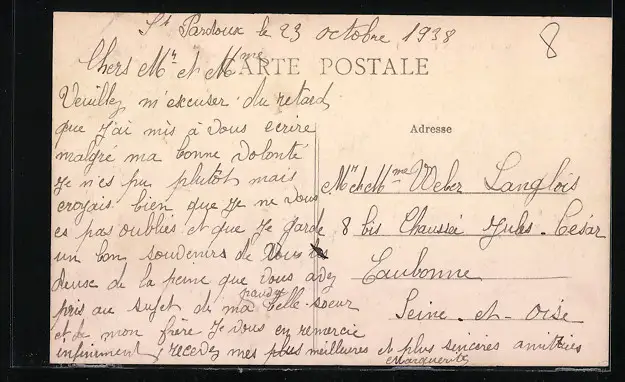 St Pardoux le 23 octobre 1938
8
Chers Mr et Mme
CARTE POSTALE
Veuillez m'excuser du retard
que j'ai mis à vous ecrire
malgré ma bonne volonté
Je n'es pu plutôt mais
croyais bien que je ne vous
es pas oubliés et que je garde
un bon souvenirs de Vous
deuse de la peine que vous avez
pris au sujet de ma pauvre belle-soeur
et de mon frère Je vous en remercie
infiniment, recevez mes plus meilleures et plus sincères amitiées
Marguerite
Adresse
Mr et Mme Weber Langlois
8 bis Chaussée Jules-César
Eaubonne
Seine-et-Oise